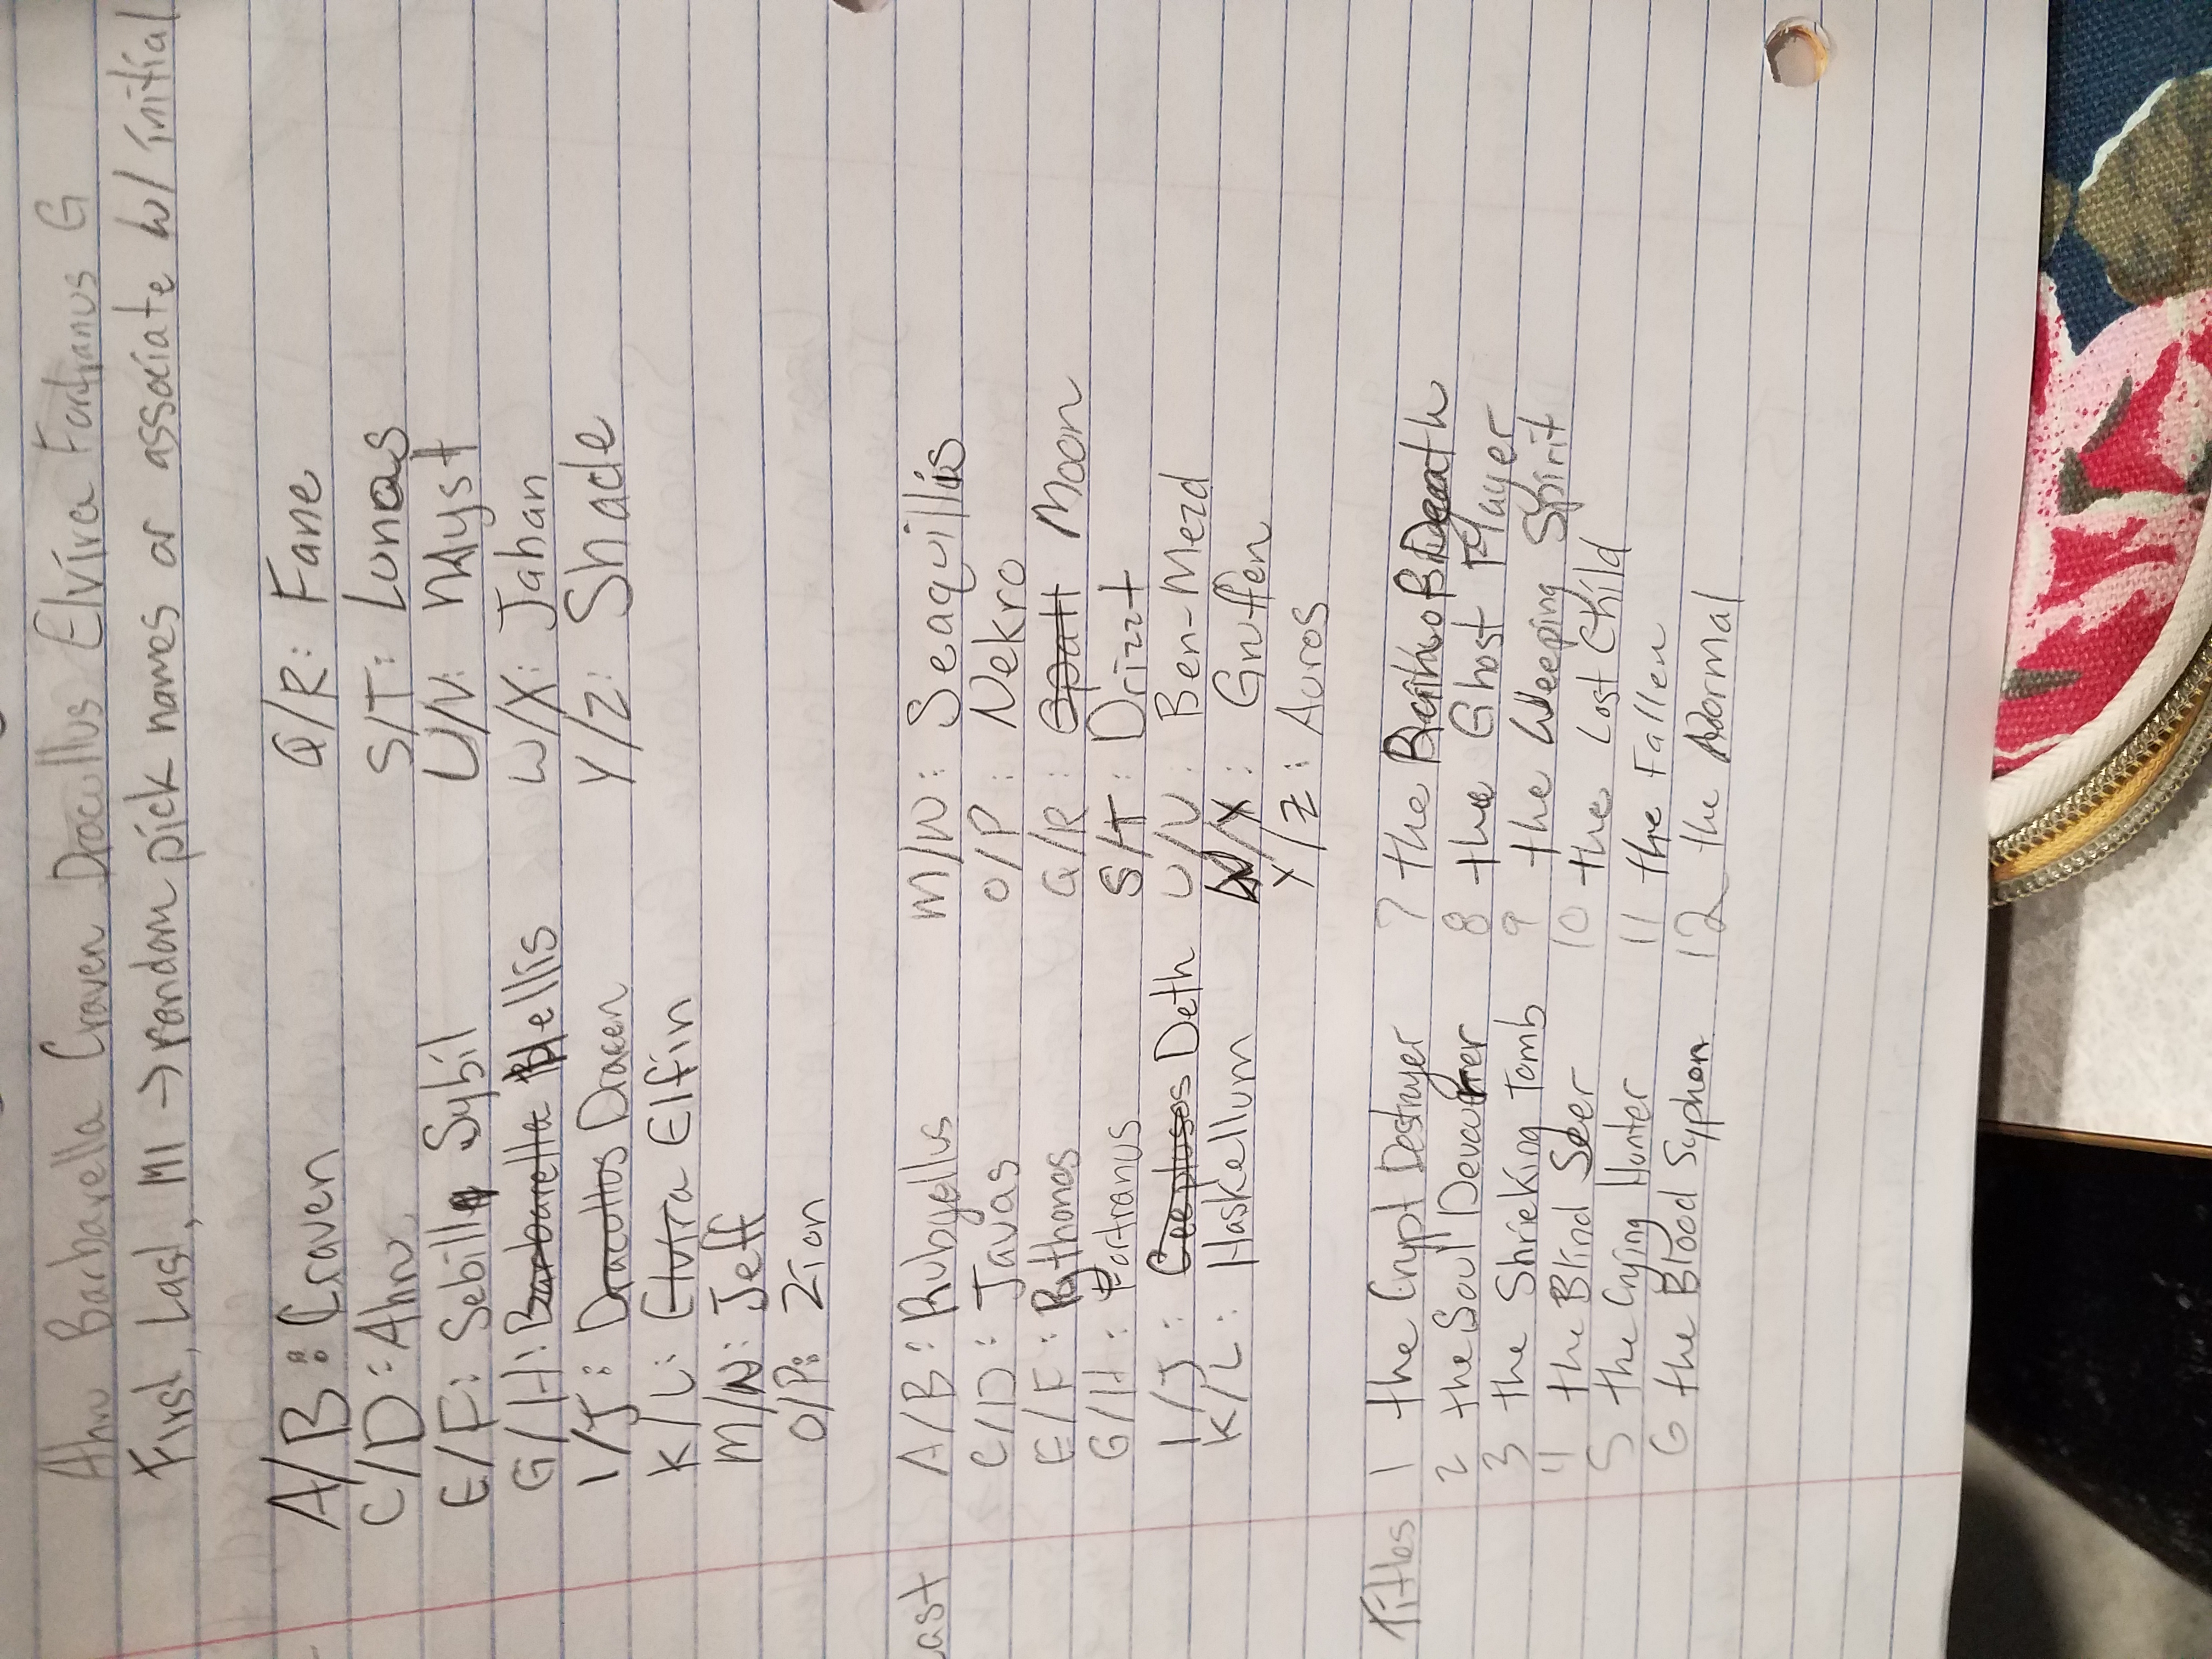 Ahru Barbarella Craven Dracullus Elvira Fortranus G
First, Last, MI -> random pick names or associate w/ initial
A/B: Craven Q/R: Fane
C/D: Ahru S/T: Lunas
E/F: Sebille Sybil U/V: Myst
G/H: Barbarella Hellis W/X: Jahan
I/J: Dracullus Dracen Y/Z: Shade
K/L: Elvira Elfin
M/N: Jeff
O/P: Zion
Last A/B: Rubyellus M/N: Seaquillis
C/D: Javas O/P: Nekro
E/F: Pythonos Q/R: Moon
G/H: Fortranus S/T: Drizzt
I/J: Deth U/V: Ben-Mezd
K/L: Haskellum W/X: Gruffen
Y/Z: Auros
Titles 1 the Crypt Destroyer 7 the Death
2 the Soul Devourer 8 the Ghost Flayer
3 the Shrieking Tomb 9 the Weeping Spirit
4 the Blind Seer 10 the Lost Child
5 the Crying Hunter 11 the Fallen
6 the Blood Syphon 12 the Normal